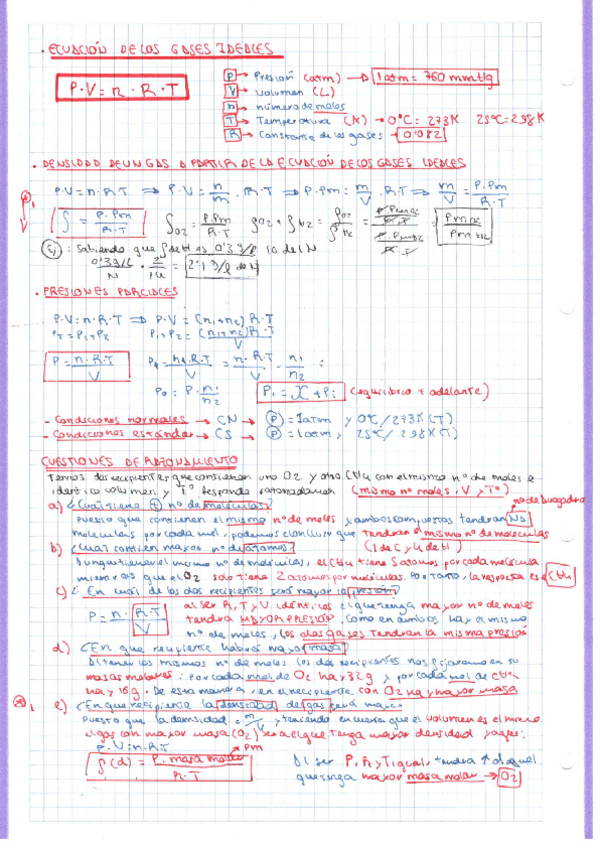 · ECUACIÓN DE LOS GASES IDEALES
P·V = n·R·T
P → Presión (atm) → 1 atm = 760 mmHg
V → Volumen (L)
n → número de moles
T → Temperatura (K) → 0ºC = 273K 25ºC = 298K
R → Constante de los gases → 0'082
· DENSIDAD DE UN GAS A PARTIR DE LA ECUACIÓN DE LOS GASES IDEALES
P·V = n·R·T ⇒ P·V = n/m · R·T ⇒ P·Pm = m/V · R·T ⇒ m/V = P·Pm/R·T
ρ = P·Pm/R·T
ρO2 = P·Pm/R·T
· PRESIONES PARCIALES
P·V = n·R·T ⇒ P·V = (n1+n2) R·T
PT = P1+P2 P1+P2 = (n1+n2) R·T/V
P = n·R·T/V
(equilibrio + adelante)
- Condiciones normales → CN → P = 1 atm y 0ºC/273K (T)
- Condiciones estándar → CS → P = 1 atm, 25ºC/298K (T)
CUESTIONES DE RAZONAMIENTO
Tenemos dos recipientes que contienen uno O2 y otro CH4 con el mismo nº de moles e
idéntico volumen y Tº Responda razonadamente (mismo nº moles, V y Tº)
nº de Avogadro
a) ¿Cual tiene + nº de moléculas?
Puesto que contienen el mismo nº de moles y ambos compuestos tendran NA
moleculas por cada mol, podemos concluir que tendran el mismo nº de moleculas
b) ¿Cual contien mayor nº de átomos? (1 de C y 4 de H)
Aunque tienen el mismo nº de moleculas, el CH4 tiene 5 atomos por cada molécula
mientras que el O2 solo tiene 2 atomos por moleculas. Por tanto, la respuesta es el CH4
c) ¿En cuál de los dos recipientes será mayor la presión?
P = n·R·T/V
al ser R, T y V idénticos el que tenga mayor nº de moles
tendra MAYOR PRESIÓN, como en ambos hay el mismo
nº de moles, los dos gases tendran la misma presión
d) ¿En que recipiente habrá mayor masa?
Al tener los mismos nº de moles los dos recipientes nos fijaremos en su
masas molares: por cada mol de O2 hay 32 g y por cada mol de CH4
hay 16 g. De esta manera, en el recipiente con O2 hay mayor masa
e) ¿En que recipiente la densidad de gas será mayor?
Puesto que la densidad = m/V y teniendo en cuenta que el volumen es el mismo
el gas con mayor masa (O2) sera el que tenga mayor densidad
P·V = n·R·T
Pm
ρ(d) = P. masa molar/R·T
Al ser P, R y T igual, tendra ↑ d aquel
que tenga mayor masa molar → O2